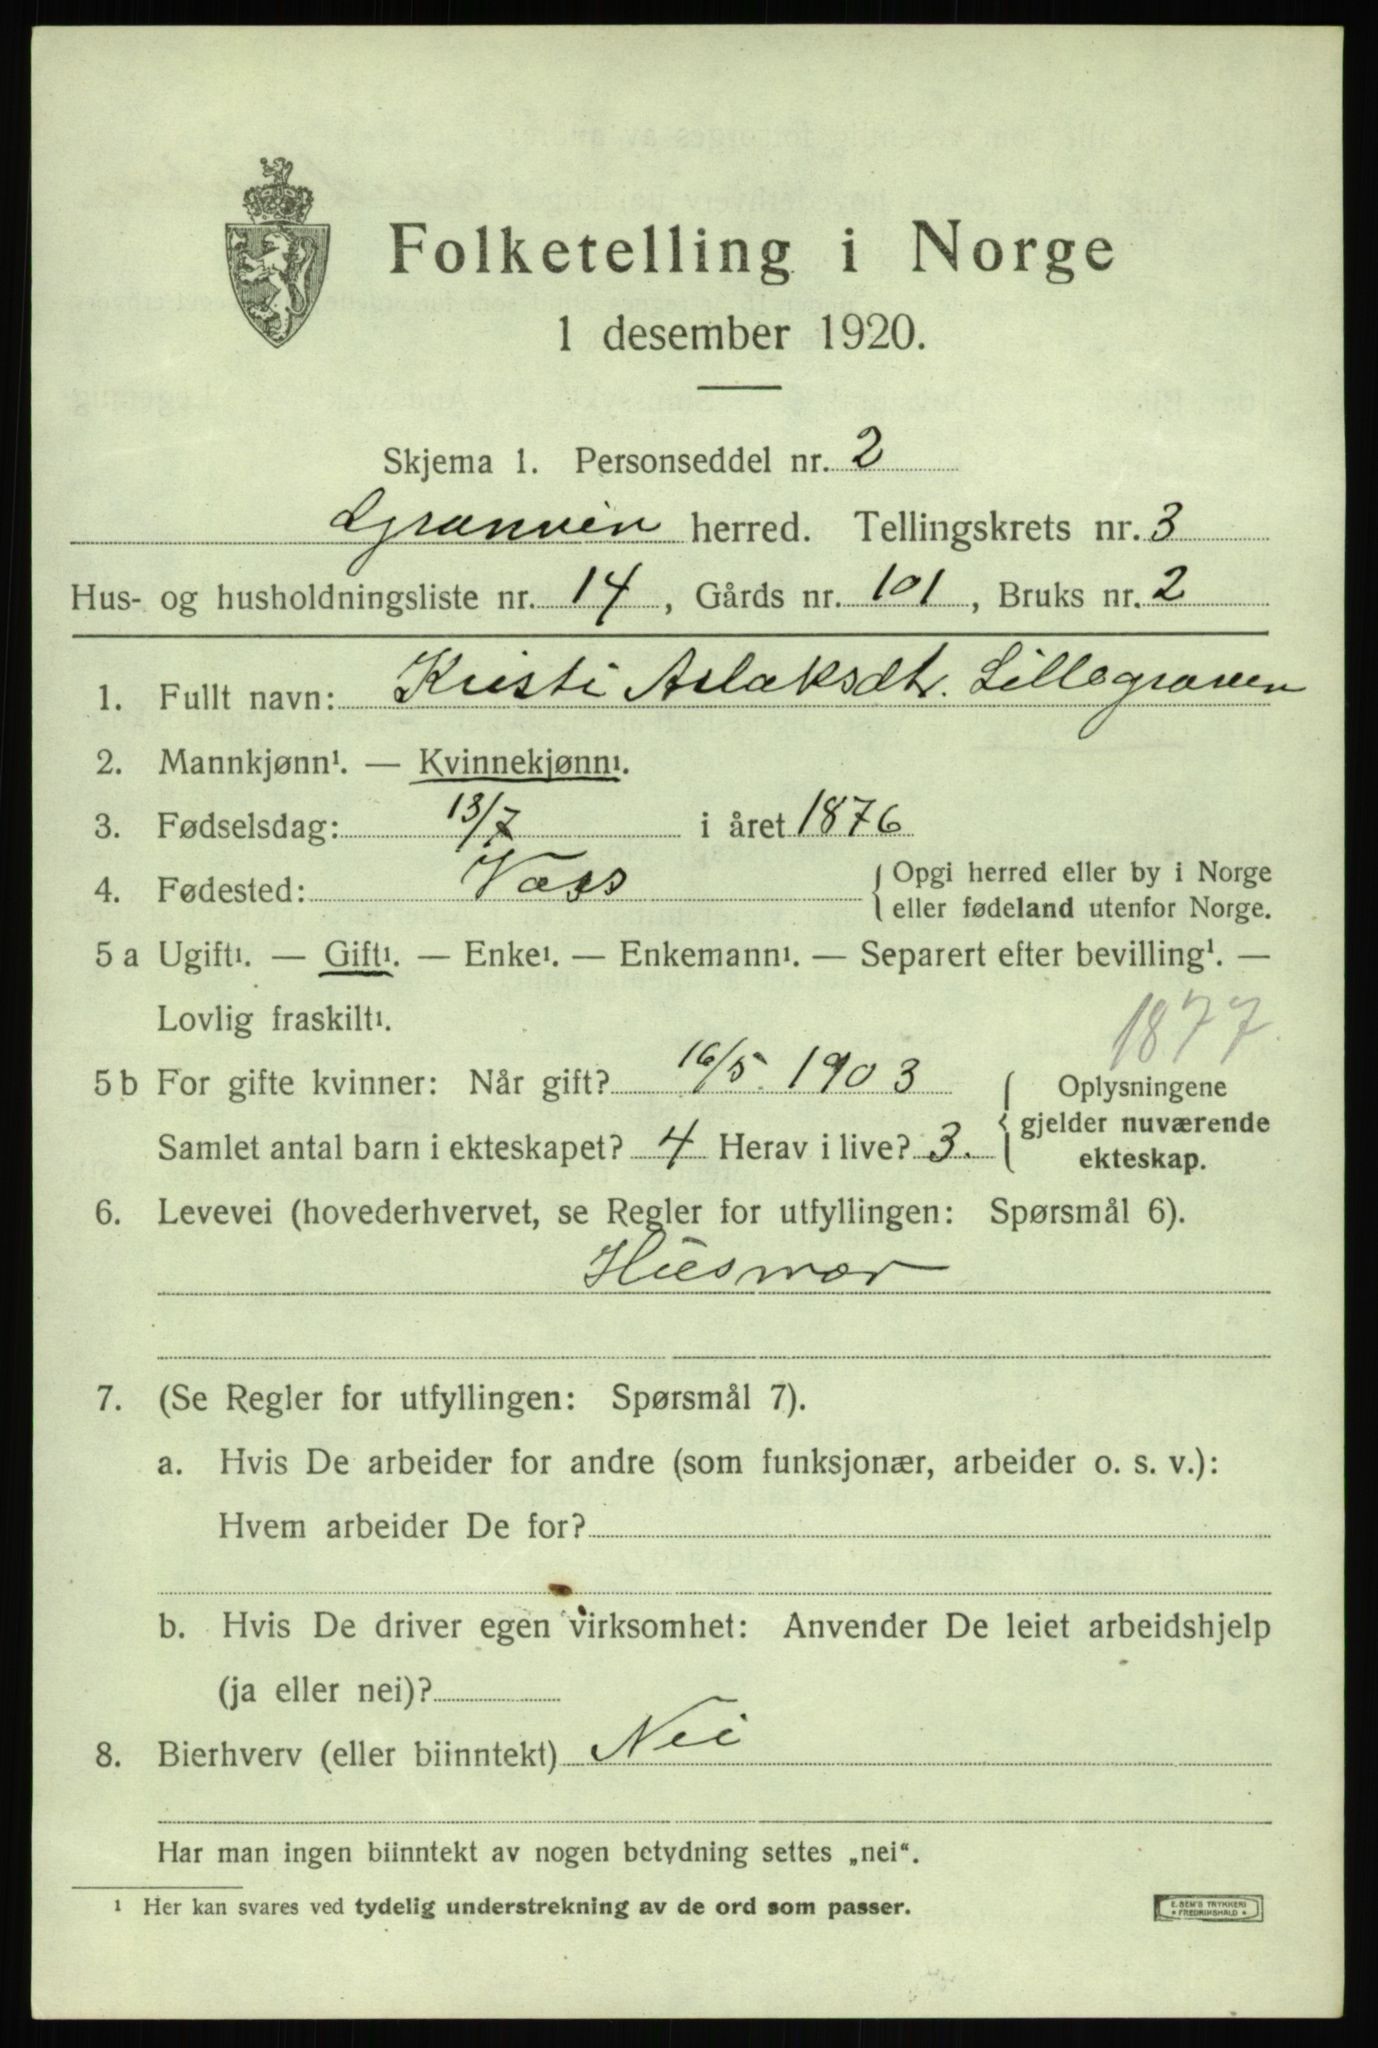 Folketelling i Norge
1 desember 1920.
Skjema 1. Personseddel nr. 2
Granvin herred. Tellingskrets nr. 3
Hus- og husholdningsliste nr. 14, Gårds nr. 101, Bruks nr. 2
1. Fullt navn: Kristi Aslaksdtr. Lillegraven
2. Mannkjønn¹. — Kvinnekjønn¹.
3. Fødselsdag: 13/7 i året 1876
4. Fødested: Voss {Opgi herred eller by i Norge
eller fødeland utenfor Norge.
5 a Ugift¹. — Gift¹. — Enke¹. — Enkemann¹. — Separert efter bevilling¹. —
Lovlig fraskilt¹.
1877
5 b For gifte kvinner: Når gift? 16/5. 1903 { Oplysningene
gjelder nuværende
Samlet antal barn i ekteskapet? 4 Herav i live? 3.
ekteskap.
6. Levevei (hovederhvervet, se Regler for utfyllingen: Spørsmål 6).
Husmor
7. (Se Regler for utfyllingen: Spørsmål 7).
a. Hvis De arbeider for andre (som funksjonær, arbeider o. s. v.):
Hvem arbeider De for?
b. Hvis De driver egen virksomhet: Anvender De leiet arbeidshjelp
(ja eller nei)?
8. Bierhverv (eller biinntekt) Nei
Har man ingen biinntekt av nogen betydning settes „nei“.
¹ Her kan svares ved tydelig understrekning av de ord som passer.
E. SEM'S TRYKKERI
* FREDRIKSHALD *